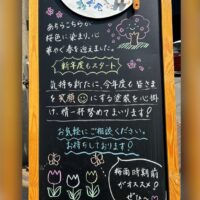 あちらこちらが
桜色に染まり、心
華やぐ春を迎えました。
新年度もスタート
気持ち新たに、今年度も皆さま
を笑顔にする塗装を心掛
け、精一杯努めてまいります!
お気軽にご相談ください。
お待ちしております!
梅雨時期前
がオススメ!
ぜひ